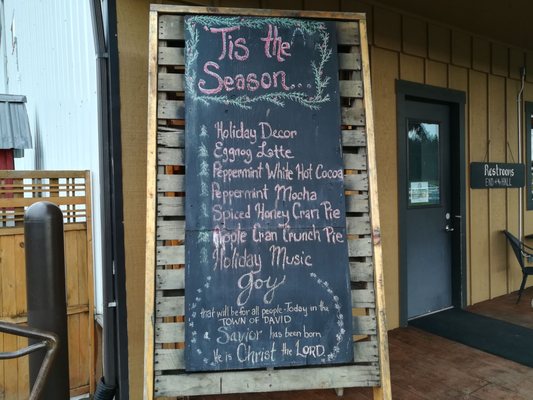 'Tis the
Season...
Holiday Decor
Eggnog Latte
Peppermint White Hot Cocoa
Peppermint Mocha
Spiced Honey Cran Pie
Apple Cran Crunch Pie
Holiday Music
Joy
that will be for all people - Today in the
TOWN OF DAVID
a Savior has been born
He is Christ the LORD
Restrooms
END of the HALL